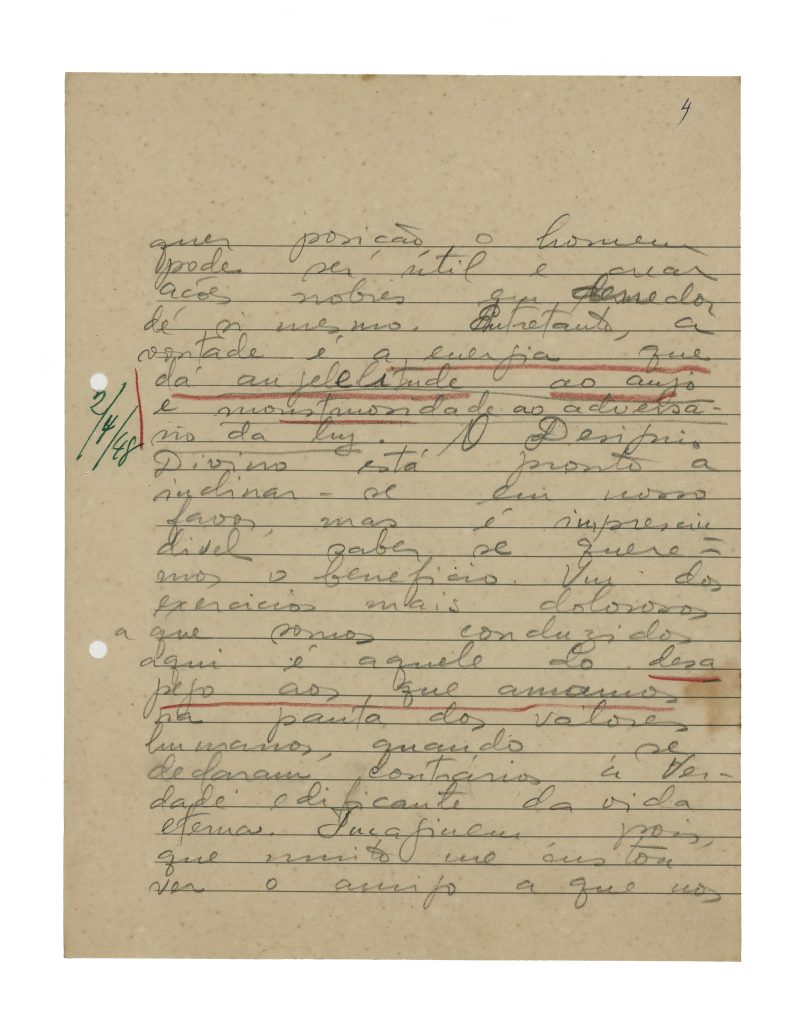 4
quer posição, o homem
pode ser útil e criar
ações nobres em derredor
de si mesmo. Entretanto, a
vontade é a energia que
dá angelelitude ao anjo
e monstruosidade ao adversá-
rio da luz. O Desígnio
2/4/48
Divino está pronto a
inclinar-se em nosso
favor, mas é imprescin
divel saber se quere=
mos o benefício. Um dos
exercicios mais dolorosos
a que somos conduzidos
aqui é aquele do desa
pego aos que amamos
na pauta dos valores
humanos, quando se
declaram contrários à Ver-
dade edificante da vida
eterna. Imaginem pois,
que muito me custou
ver o amigo a que nos